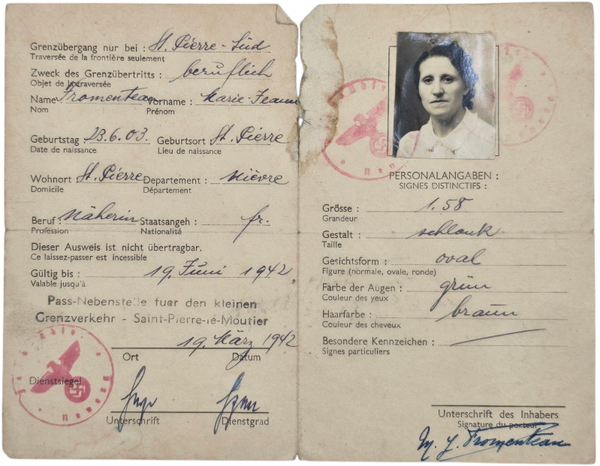 Grenzübergang nur bei : St. Pierre-Süd
Traversée de la frontière seulement
Zweck des Grenzübertritts : beruflich
Objet de traversée
Name Fromenteau Vorname : Marie-Jeann
Nom Prénom
Geburtstag 23.6.03. Geburtsort St. Pierre
Date de naissance Lieu de naissance
Wohnort St. Pierre Departement : Nièvre
Domicile Département
Beruf : Näherin Staatsangeh : fr.
Profession Nationalité
Dieser Ausweis ist nicht übertragbar.
Ce laissez-passer est incessible
Gültig bis : 19. Juni 1942.
Valable jusqu'à
Pass-Nebenstelle fuer den kleinen
Grenzverkehr - Saint-Pierre-lé-Moutier
19. März 1942
Ort Datum
Dienstsiegel
Unterschrift Dienstgrad
PERSONALANGABEN :
SIGNES DISTINCTIFS :
Grösse : 1.58
Grandeur
Gestalt : schlank
Taille
Gerichtsform : oval
Figure (normale, ovale, ronde)
Farbe der Augen : grün
Couleur des yeux
Haarfarbe : braun
Couleur des cheveux
Besondere Kennzeichen :
Signes particuliers
Unterschrift des Inhabers
Signature du porteur
M. J. Fromenteau